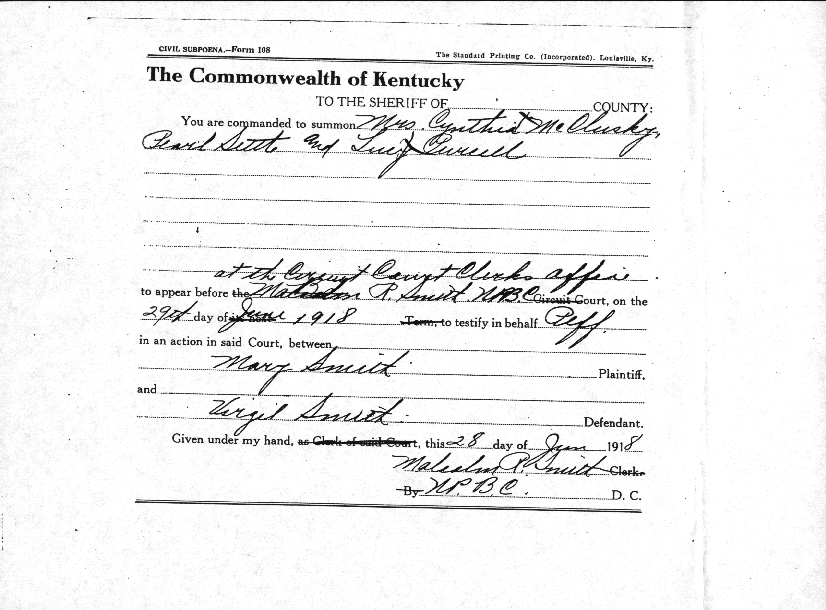 CIVIL SUBPOENA.—Form 108 The Standard Printing Co. (Incorporated). Louisville, Ky.
The Commonwealth of Kentucky
TO THE SHERIFF OF COUNTY:
You are commanded to summon Mrs. Cynthia McCluskey,
Pearl Sutt and Lucy Pursell
at the Circuit Court Clerks office
to appear before the Malcolm P. Smith N.P.B.C. Circuit Court, on the
29th day of June 1918 Term, to testify in behalf Peff.
in an action in said Court, between
Mary Smith Plaintiff.
and
Virgil Smith Defendant.
Given under my hand, as Clerk of said Court, this 28 day of Jun 1918
Malcolm P. Smith Clerk
By N.P.B.C. D. C.